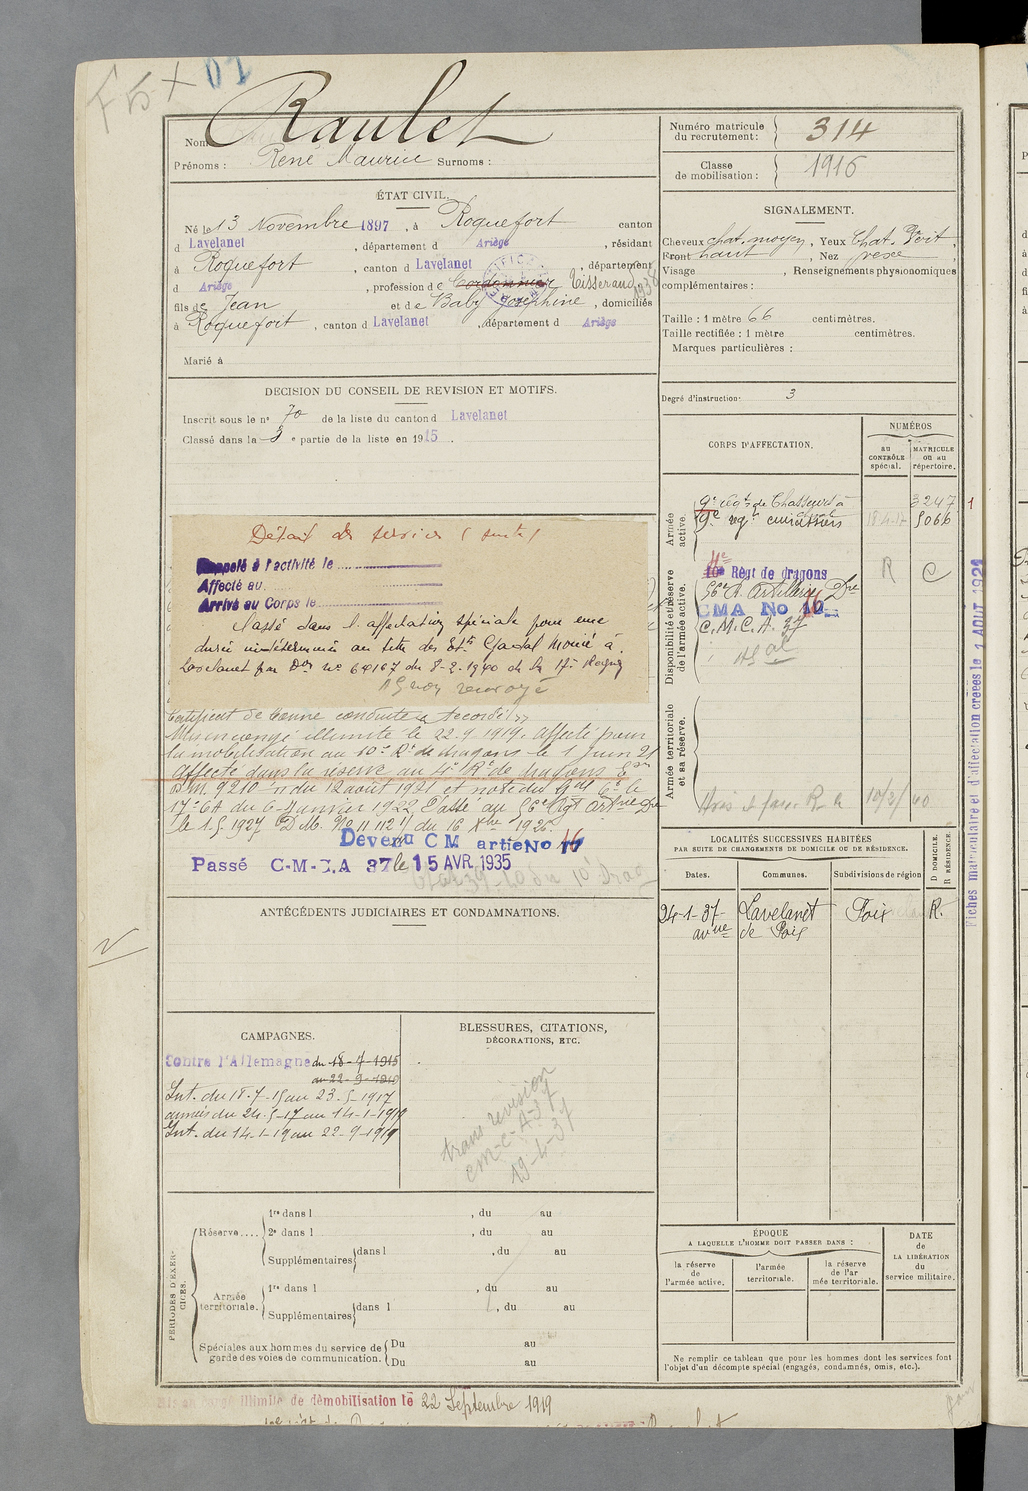 Nom Raulet
Prénoms : René Maurice Surnoms :
Numéro matricule du recrutement : 314
Classe de mobilisation : 1916
ÉTAT CIVIL.
Né le 13 Novembre 1897, à Roquefort canton
d Lavelanet, département d Ariège, résidant
à Roquefort, canton d Lavelanet, département
d Ariège, profession de Cordonnier Tisserand 1938
fils de Jean et de Baby Joséphine, domiciliés
à Roquefort, canton d Lavelanet, département d Ariège
Marié à
SIGNALEMENT.
Cheveux chat. moyen, Yeux Chat. Vert,
Front haut, Nez
Visage , Renseignements physionomiques
complémentaires :
Taille : 1 mètre 66 centimètres.
Taille rectifiée : 1 mètre centimètres.
Marques particulières :
Degré d'instruction : 3
DÉCISION DU CONSEIL DE REVISION ET MOTIFS.
Inscrit sous le n° 70 de la liste du canton d Lavelanet
Classé dans la 3 e partie de la liste en 1915.
Détail des services (suite)
Rappelé à l'activité le
Affecté au
Arrivé au Corps le
Classé dans l'affectation spéciale pour une
durée indéterminée au titre des Ets Monié à
Lavelanet par Don No 64167 du 8-2-1940 de la 17e Région
AS non renvoyé
Certificat de bonne conduite "Accordé"
Mis en congé illimité le 22.9.1919. Affecté pour
la mobilisation au 10e Rt de dragons le 1 Juin 21
Affecté dans la réserve au 4e Rt de dragons
D.M. 9210 du 12 août 1921 et note du Gal Ct le
17e CA du 6 Janvier 1922. Passé au 56e Rgt Artrie Dre
le 1.5.1927 D.M. No 11112 du 16 Xbre 1926.
Devenu CM artie No 16
Passé C-M-C.A 37 le 15 AVR. 1935
CORPS D'AFFECTATION.
NUMÉROS
au CONTRÔLE spécial.
MATRICULE ou au répertoire.
Armée active.
9e régt de Chasseurs à cheval 3247
9e rgt cuirassiers 18-4-17 5066
Disponibilité et réserve de l'armée active.
4e Régt de dragons R C
56e R. Artillerie Dre
CMA No 16
C.M.C.A. 37
Armée territoriale et sa réserve.
10/3/40
Fiches matriculaire et d'affectation créées le 1 AOUT 1921
LOCALITÉS SUCCESSIVES HABITÉES
PAR SUITE DE CHANGEMENTS DE DOMICILE OU DE RÉSIDENCE.
Dates. Communes. Subdivisions de région
D DOMICILE. R RÉSIDENCE.
24-1-37 Lavelanet Foix R.
avue de Foix
ANTÉCÉDENTS JUDICIAIRES ET CONDAMNATIONS.
CAMPAGNES.
Contre l'Allemagne du 18-7-1915
au 22-9-1919
Int. du 18-7-15 au 23-5-1917
armées du 24-5-17 au 14-1-1919
Int. du 14-1-19 au 22-9-1919
BLESSURES, CITATIONS,
DÉCORATIONS, ETC.
trans revision
CM-C-A-37
19-1-37
PÉRIODES D'EXERCICES.
Réserve....
1re dans l , du au
2e dans l , du au
Supplémentaires dans l , du au
Armée territoriale.
1re dans l , du au
Supplémentaires dans l , du au
Spéciales aux hommes du service de garde des voies de communication.
Du au
Du au
ÉPOQUE
A LAQUELLE L'HOMME DOIT PASSER DANS :
la réserve de l'armée active.
l'armée territoriale.
la réserve de l'armée territoriale.
DATE de LA LIBÉRATION du service militaire.
Ne remplir ce tableau que pour les hommes dont les services font
l'objet d'un décompte spécial (engagés, condamnés, omis, etc.).
Mis en congé illimité de démobilisation le 22 Septembre 1919